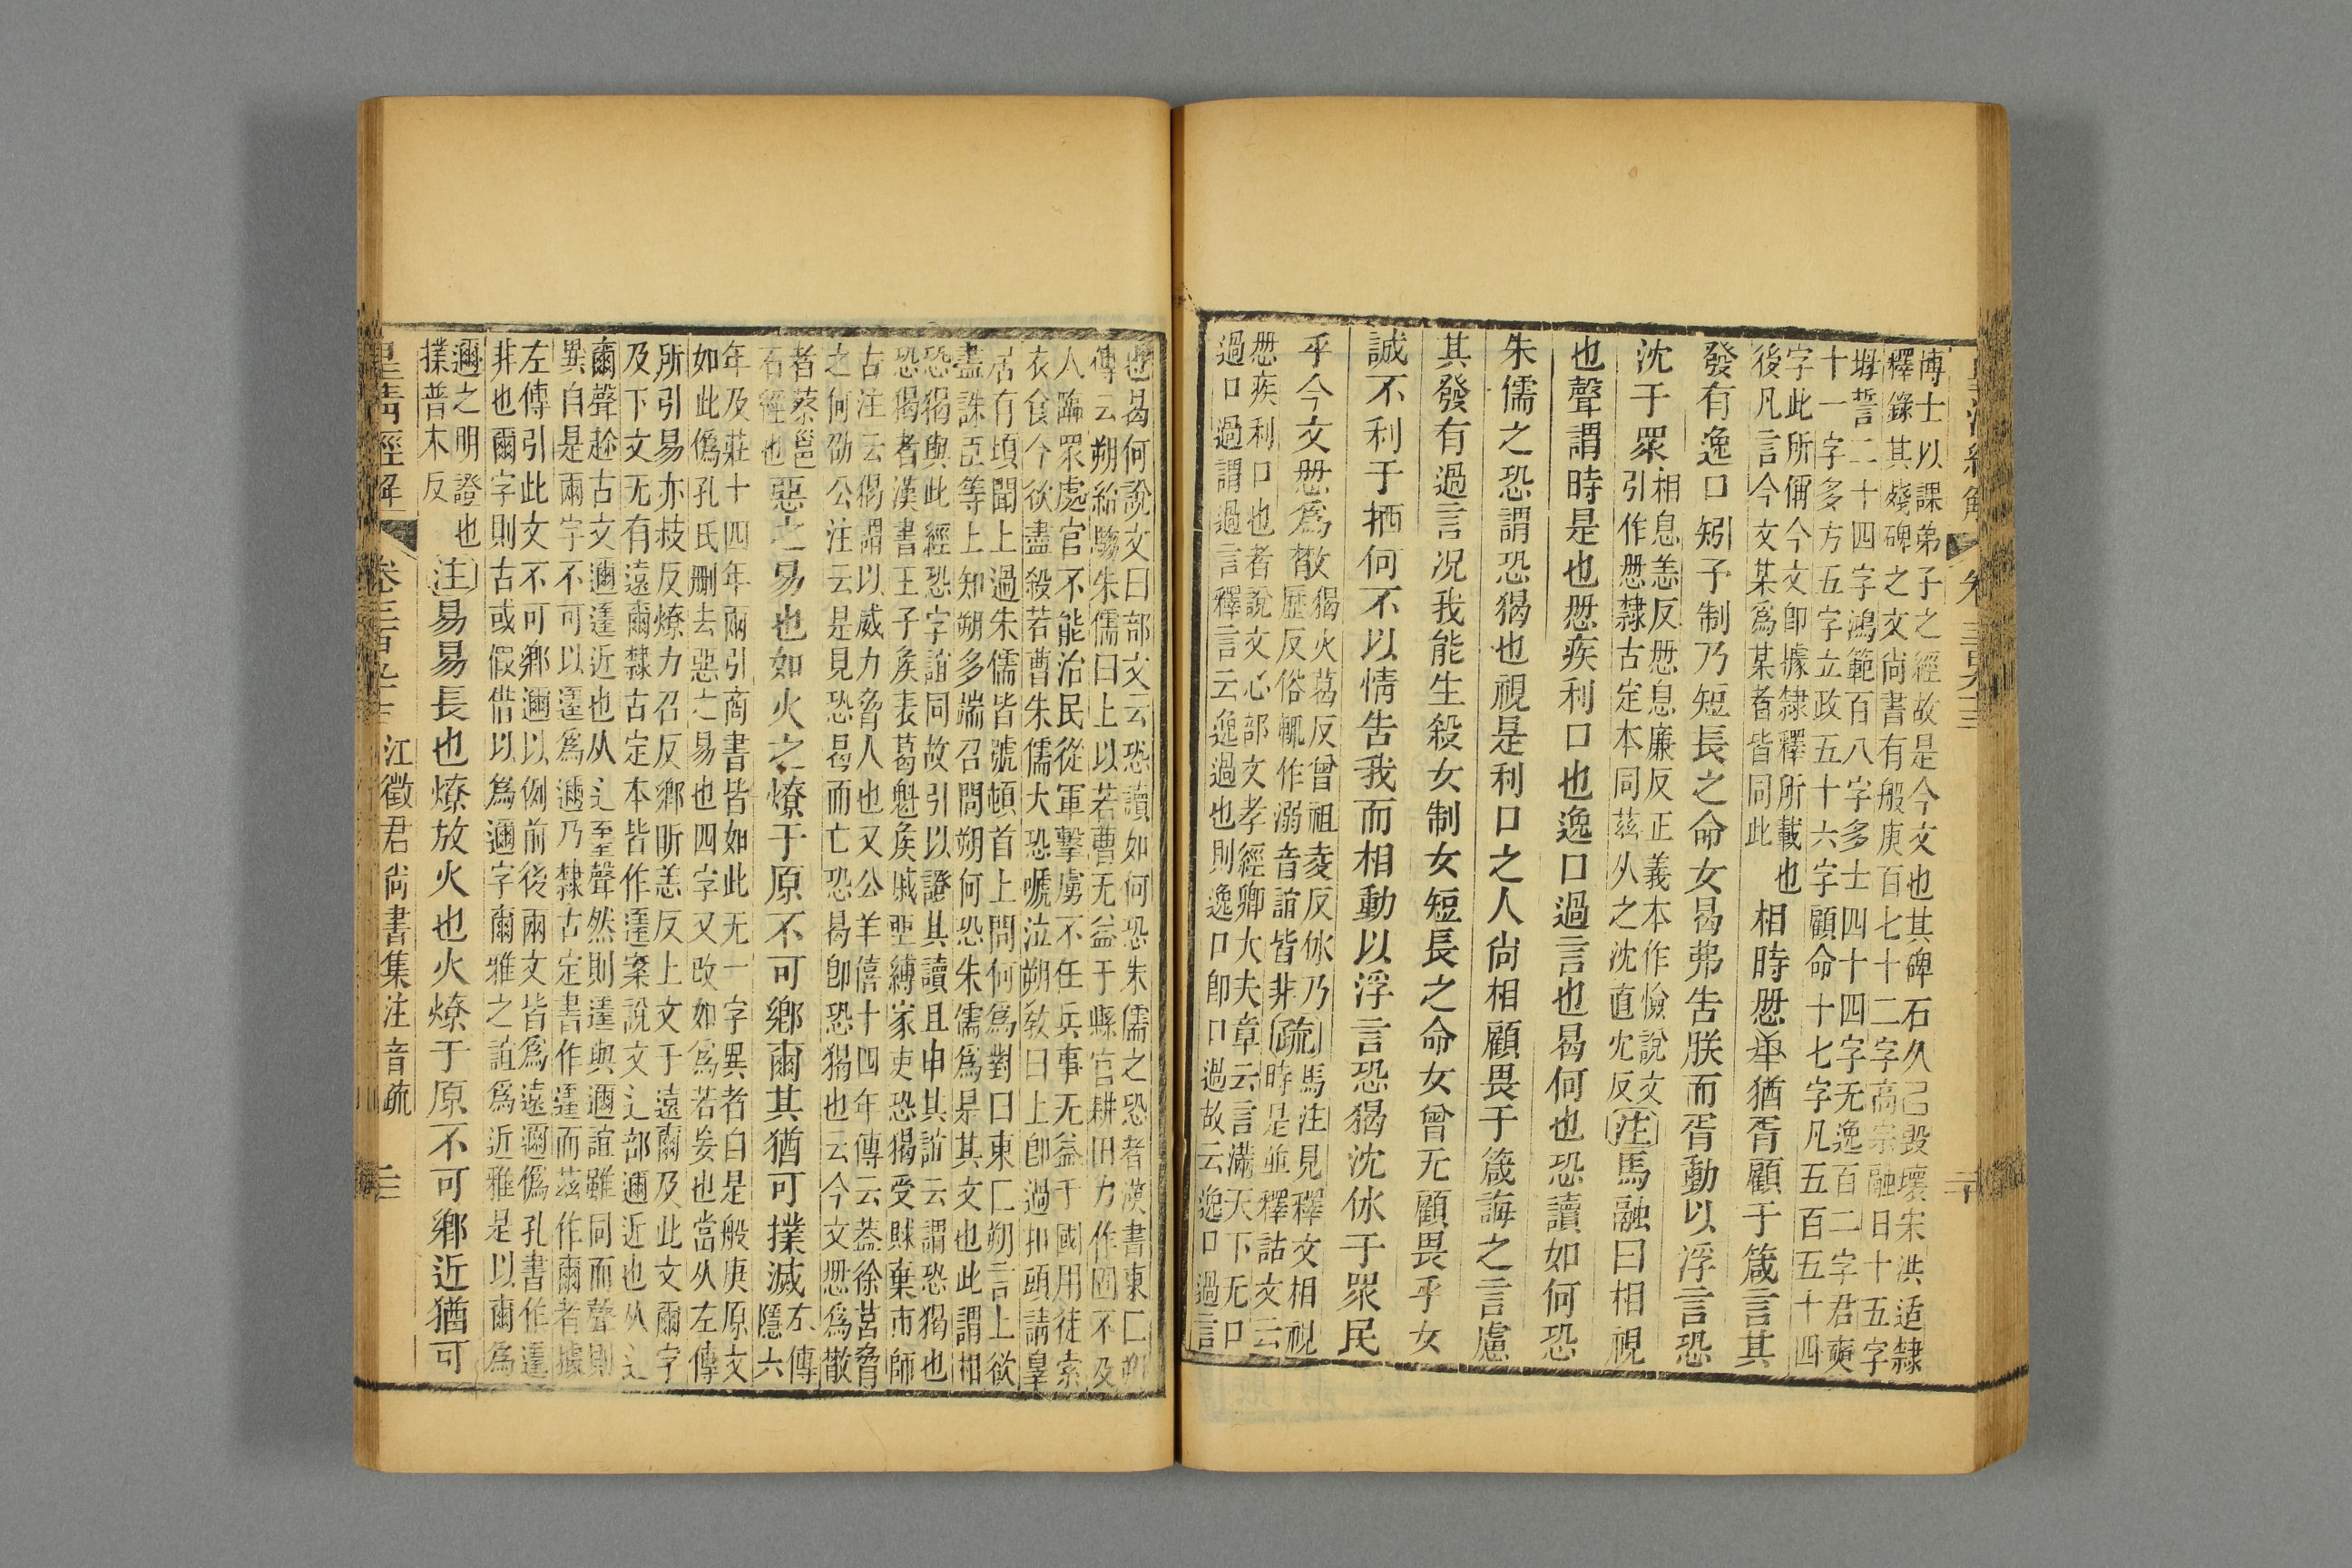 皇清經解 卷三百九十三
博士以課弟子之經故是今文也其碑石久已毀壞宋洪适隸
釋錄其殘碑之文尙書有般庚百七十二字高宗融日十五字
坶誓二十四字鴻範百八字多士四十四字无逸百二字君奭
十一字多方五字立政五十六字顧命十七字凡五百五十四
字此所偁今文卽據隸釋所載也
後凡言今文某爲某者皆同此
相時愳𠦪猶胥顧于箴言其
發有逸口矧予制乃短長之命女曷弗吿朕而胥動以浮言恐
沈于眾
相息恙反愳息廉反正義本作憸說文
引作愳隸古定本同茲从之沈直冘反
注馬融曰相視
也聲謂時是也愳疾利口也逸口過言也曷何也恐讀如何恐
朱儒之恐謂恐猲也視是利口之人尙相顧畏于箴誨之言慮
其發有過言况我能生殺女制女短長之命女曾无顧畏乎女
誠不利于栖何不以情吿我而相動以浮言恐猲沈㲻于眾民
乎今文愳爲散
猲火葛反曾祖夌反㲻乃
歷反俗輒作溺音誼皆非
疏馬注見釋文相視
時是竝釋詁文云
愳疾利口也者說文心部文孝經卿大夫章云言滿天下无口
過口過謂過言釋言云逸過也則逸口卽口過故云逸口過言
也曷何說文曰部文云恐讀如何恐朱儒之恐者漢書東匚朔
傳云朔紿騶朱儒曰上以若曹无益于縣官耕田力作固不及
人臨眾處官不能治民從軍擊虜不任兵事无益于國用徒索
衣食今欲盡殺若曹朱儒大恐嗁泣朔敎曰上卽過扣頭請辠
居有頃聞上過朱儒皆號頓首上問何爲對曰東匚朔言上欲
盡誅臣等上知朔多端召問朔何恐朱儒爲是其文也此謂相
恐猲與此經恐字誼同故引以證其讀且申其誼云謂恐猲也
恐猲者漢書王子矦表葛魁矦戚坐縛家吏恐猲受賕棄市師
古注云猲謂以威力脅人也又公羊僖十四年傳云葢徐莒脅
之何劭公注云是見恐曷而亡恐曷卽恐猲也云今文愳爲散
者蔡邕
石經也
惡之易也如火之燎于原不可鄉爾其猶可撲滅
左傳
隱六
年及莊十四年兩引商書皆如此无一字異者自是般庚原文
如此僞孔氏刪去惡之易也四字又改如爲若妄也當从左傳
所引易亦豉反燎力召反鄉昕恙反上文于遠爾及此文爾字
及下文无有遠爾隸古定本皆作𨗨案說文辵部邇近也从辵
爾聲𨒬古文邇𨗨近也从辵臸聲然則𨗨與邇誼雖同而聲則
異自是兩字不可以𨗨爲邇乃隸古定書作𨗨而茲作爾者據
左傳引此文不可鄉邇以例前後兩文皆爲遠邇僞孔書作𨗨
非也爾字則古或假借以爲邇字爾雅之誼爲近雅是以爾爲
邇之明證也
撲普木反
注易易長也燎放火也火燎于原不可鄉近猶可
皇清經解 卷三百九十三 江徵君尙書集注音疏 三